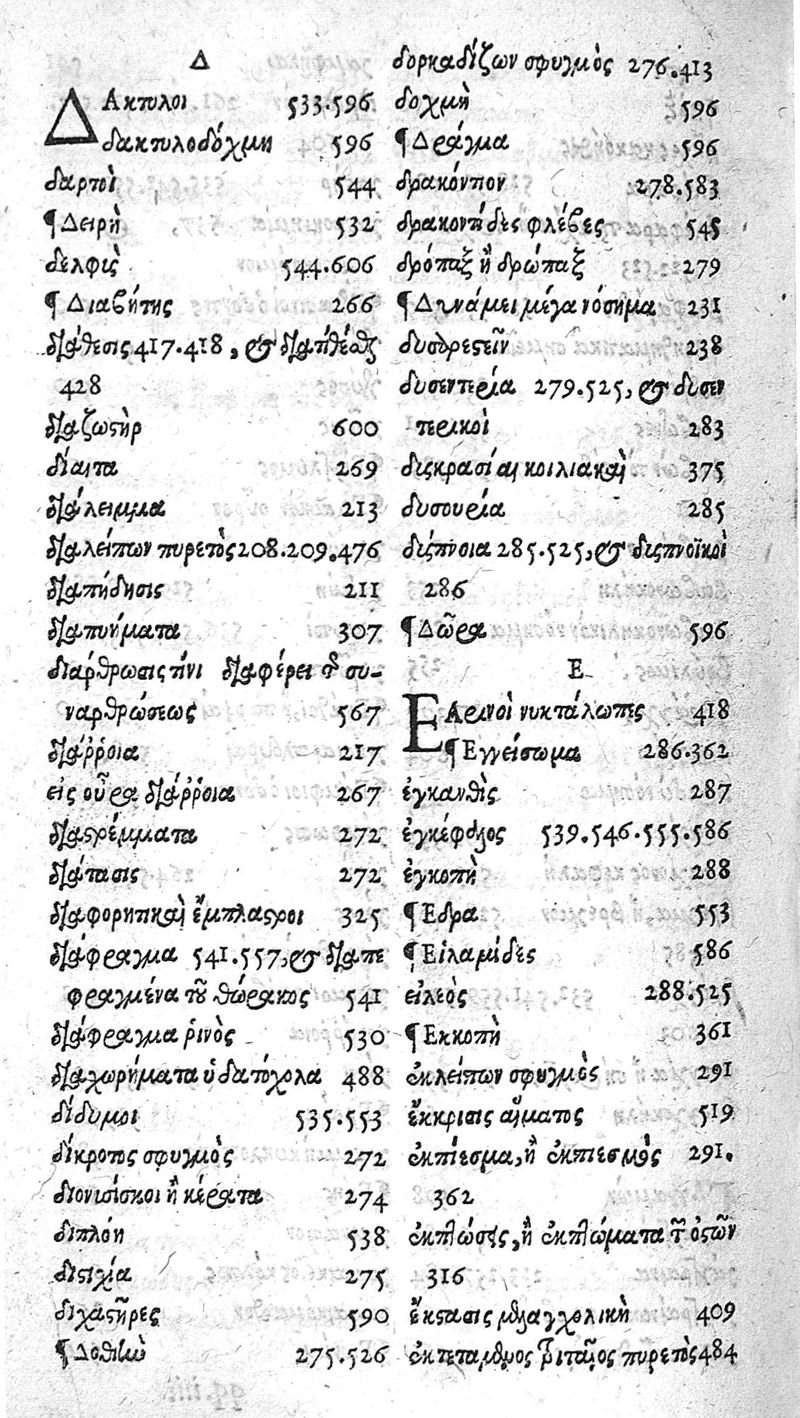 Δ
ΔΑκτυλοι 533.596
δακτυλοδόχμη 596
δαρτοὶ 544
¶ Δειρὴ 532
δελφὶς 544.606
¶ Διαβήτης 266
διάθεσις 417.418, &
428
διαζωστὴρ 600
δίαιτα 269
διάλειμμα 213
διαλείπων πυρετὸς 208.209.476
διαπήδησις 211
διαπυήματα 307
διάρθρωσις τίνι διαφέρει τῆς συ-
ναρθρώσεως 567
διάῤῥοια 217
εἰς οὖρα διάῤῥοια 267
διαστρέμματα 272
διάτασις 272
διαφορητικαὶ ἔμπλαστροι 325
διάφραγμα 541.557, & διαπε
φραγμένα τοῦ θώρακος 541
διάφραγμα ῥινὸς 530
διαχωρήματα ὑδατόχολα 488
δίδυμοι 535.553
δίκροτος σφυγμὸς 272
διονισίσκοι ἢ κέρατα 274
διπλόη 538
διστιχία 275
διχαστῆρες 590
¶ Δοθιὼ 275.526
δορκαδίζων σφυγμὸς 276.413
δοχμὴ 596
¶ Δράγμα 596
δρακόντιον 278.583
δρακοντίδες φλέβες 545
δρόπαξ ἢ δρώπαξ 279
¶ Δυνάμει μέγα νόσημα 231
δυσουρεστεῖν 238
δυσεντερία 279.525, & δυσεν
τερικοὶ 283
δυσκρασίαι κοιλιακαὶ 375
δυσουρία 285
δύσπνοια 285.525, & δυσπνοϊκοὶ
286
¶ Δῶρα 596
Ε
ΕΑρινοὶ νυκτάλωπες 418
¶ Εγγείσωμα 286.362
ἐγκανθὶς 287
ἐγκέφαλος 539.546.555.586
ἐγκοπὴ 288
¶ Εδρα 553
¶ Εἱλαμίδες 586
εἰλεὸς 288.525
¶ Εκκοπὴ 361
ἐκλείπων σφυγμὸς 291
ἔκκρισις αἵματος 519
ἐκπίεσμα, ἢ ἐκπιεσμὸς 291.
362
ἐκπτώσεις, ἢ ἐκπτώματα τῶν ὀστῶν
316
ἔκστασις μελαγχολικὴ 409
ἐκτεταμένος τριταῖος πυρετὸς 484